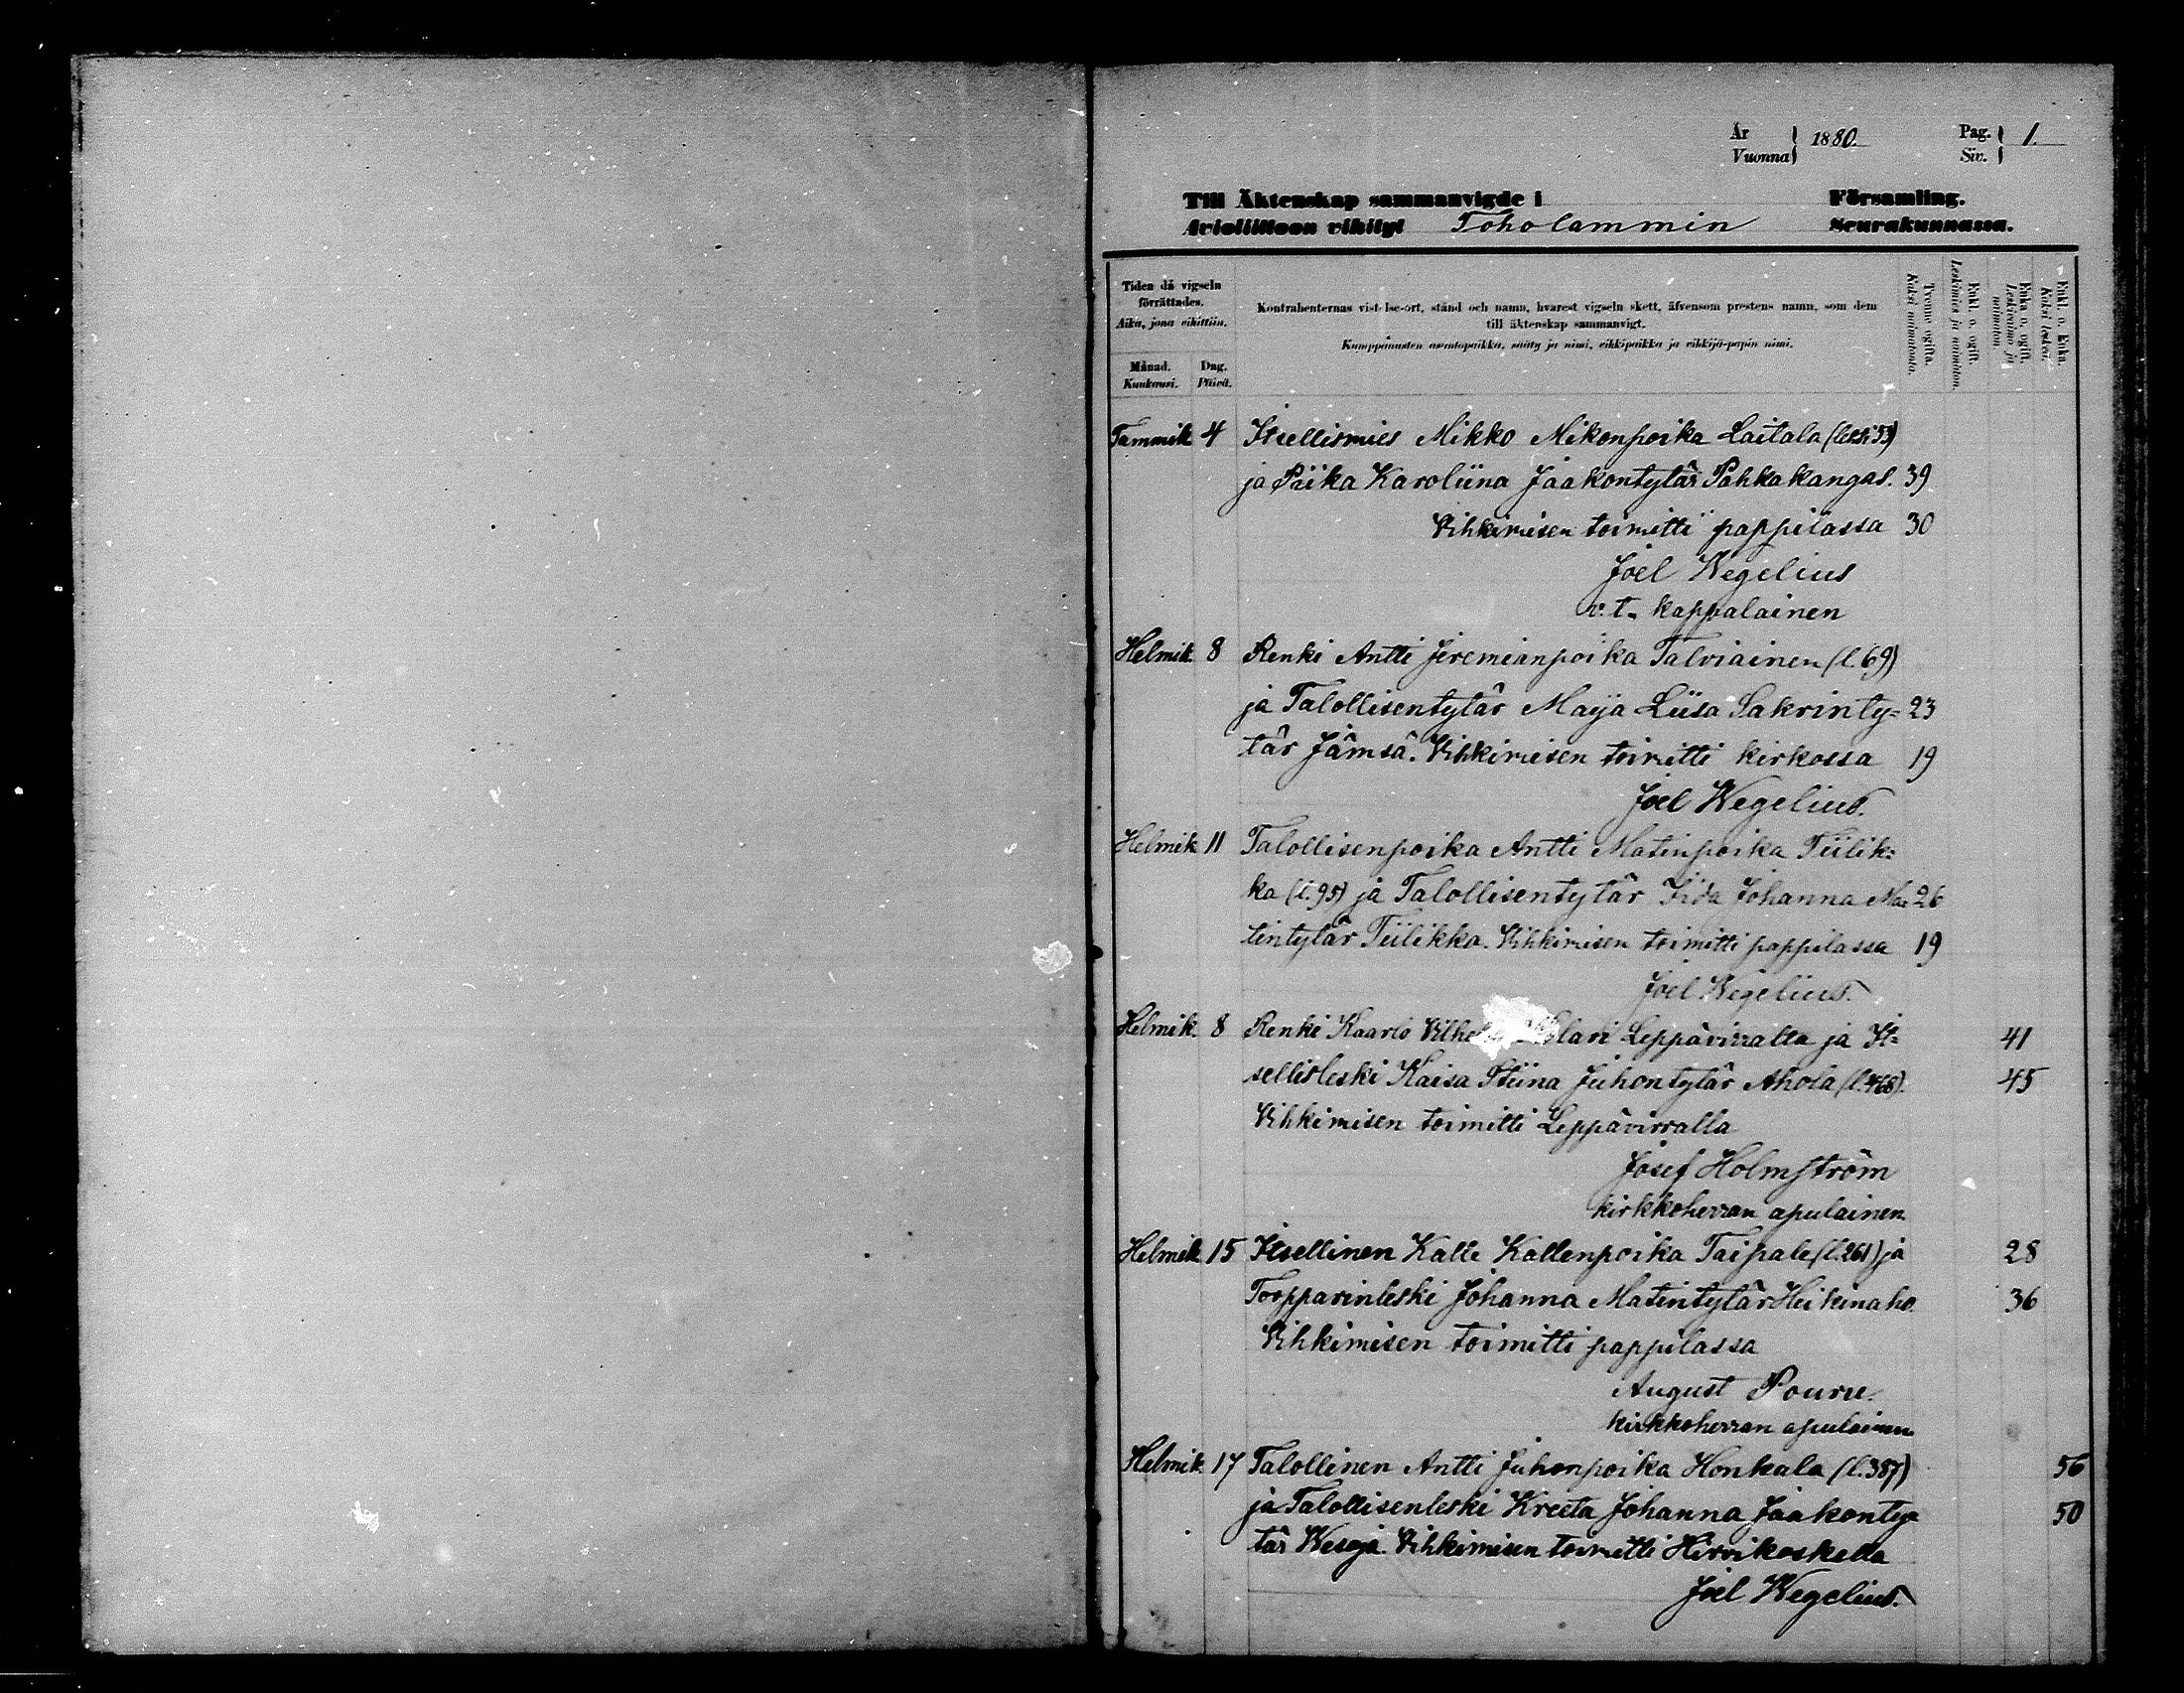 År Vuonna 1880. Pag. Siv. 1.
Till Äktenskap sammanvigde i Församling.
Avioliittoon vihityt Toholammin Seurakunnassa.
Tiden då vigseln förrättades.
Aika, jona vihittiin.
Månad. Kuukausi.
Dag. Päivä.
Kontrahenternas vistelse-ort, stånd och namn, hvarest vigseln skett, äfvensom prestens namn, som dem
till äktenskap sammanvigt.
Kumppanusten asuntopaikka, sääty ja nimi, vihkipaikka ja vihkijä-papin nimi.
Tvenne ogifta. Kaksi naimatonta.
Enkl. o. ogift. Leskimies ja naimaton.
Enka o. ogift. Leskivaimo ja naimaton.
Enkl. o. Enka. Kaksi leskeä.
Tammik. 4 Itsellismies Mikko Mikonpoika Laitala
ja Piika Karoliina Jaakontytär Pahkakangas. 39
Vihkimisen toimitti pappilassa 30
Joel Wegelius
v. t. kappalainen
Helmik. 8 Renki Antti Jeremianpoika Talviainen (l. 69)
ja Talollisentytär Maija Liisa Sakrinty= 23
tär Jämsä. Vihkimisen toimitti kirkossa 19
Joel Wegelius.
Helmik. 11 Talollisenpoika Antti Matinpoika Tiilik=
ka (l. 95) ja Talollisentytär Iida Johanna Ma= 26
tintytär Tiilikka. Vihkimisen toimitti pappilassa 19
Joel Wegelius.
Helmik. 8 Renki Kaarlo Leppävirralta ja It= 41
sellisleski Kaisa Stiina Juhontytär Ahola (l. 468). 45
Vihkimisen toimitti Leppävirralla
Josef Holmström
kirkkoherran apulainen.
Helmik. 15 Itsellinen Kalle Kallenpoika Taipale (l. 261) ja 28
Torpparinleski Johanna Matintytär Heikinaho. 36
Vihkimisen toimitti pappilassa
August
kirkkoherran apulainen.
Helmik. 17 Talollinen Antti Juhonpoika Honkala (l. 387) 56
ja Talollisenleski Kreeta Johanna Jaakonty= 50
tär Wesoja. Vihkimisen toimitti Hirvikoskella
Joel Wegelius.